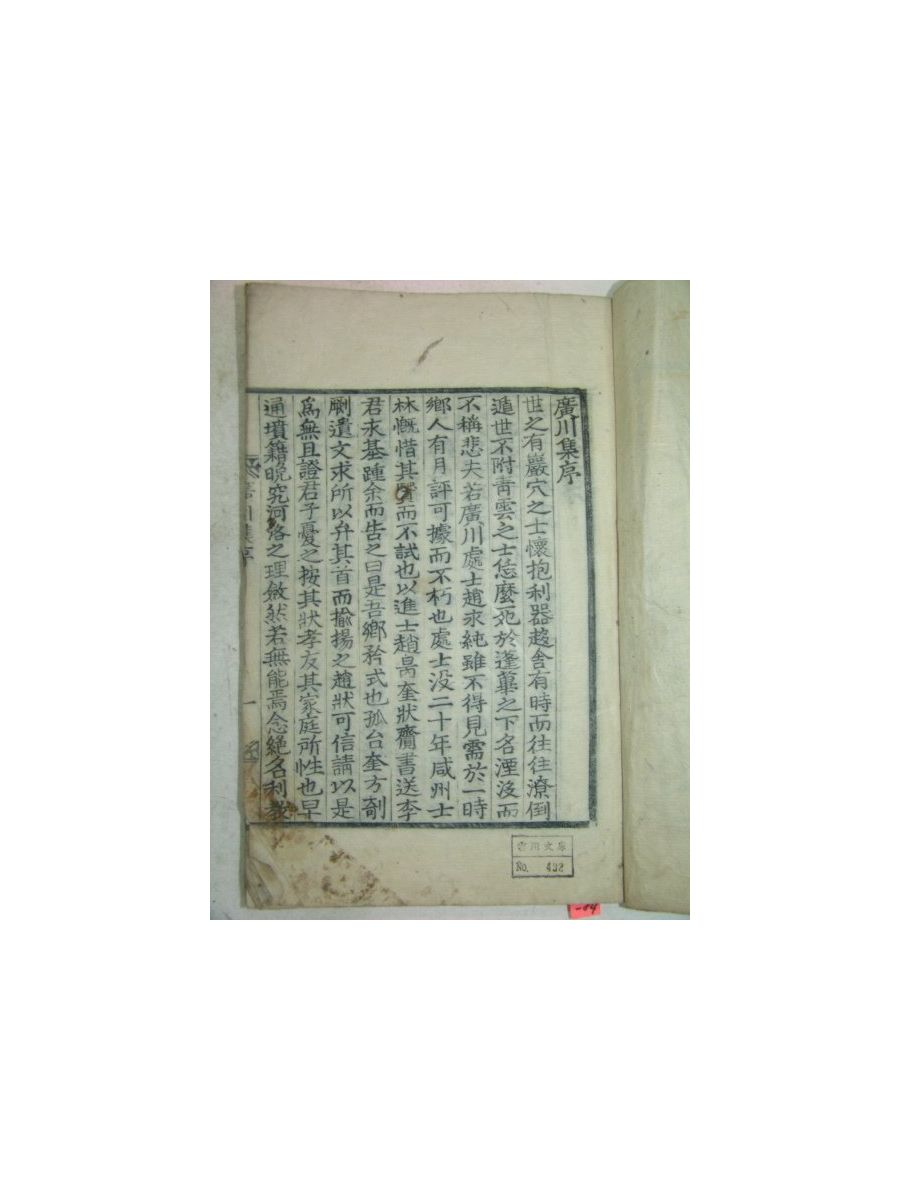 廣川集序
世之有巖穴之士懷抱利器趍舍有時而往往潦倒
遁世不附靑雲之士恁麽死於蓬蒿之下名湮沒而
不稱悲夫若廣川處士趙求純雖不得見需於一時
鄕人有月評可據而不朽也處士没二十年咸州士
林慨惜其賢而不試也以進士趙昺奎狀齎書送李
君求基踵余而告之曰是吾鄕矜式也孤台奎方剞
劂遺文求所以弁其首而揄揚之趙狀可信請以是
爲無且證君子憂之按其狀孝友其家庭所性也早
通墳籍晩究河洛之理斂然若無能焉念絶名利敎
川集序
一
文庫
No. 432
-84